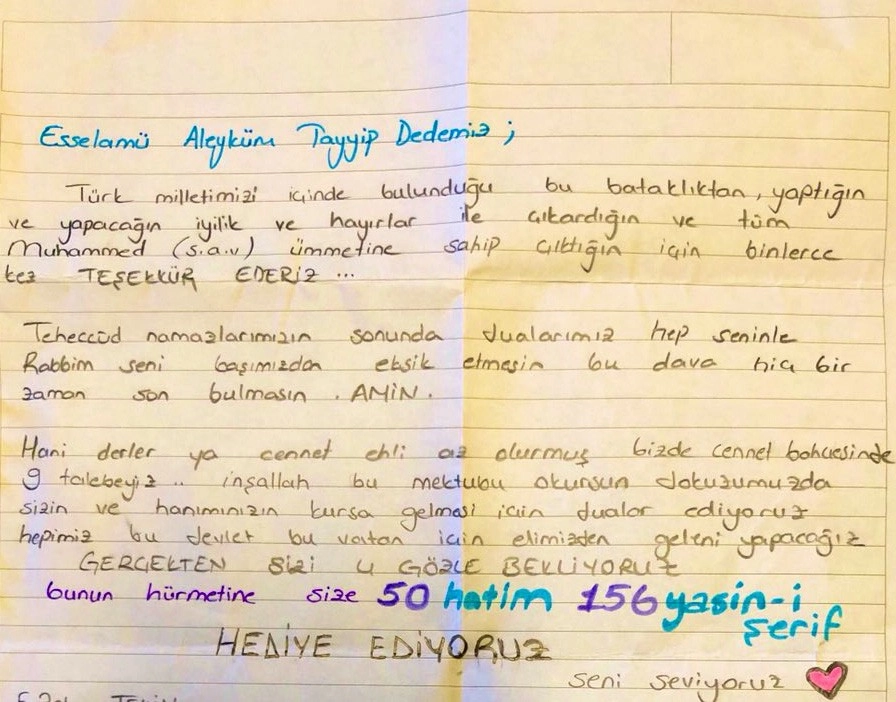 Esselamü Aleyküm Tayyip Dedemiz ;
Türk milletimizi içinde bulunduğu bu bataklıktan, yaptığın
ve yapacağın iyilik ve hayırlar ile çıkardığın ve tüm
Muhammed (s.a.v) ümmetine sahip çıktığın için binlerce
kez TEŞEKKÜR EDERİZ ...
Teheccüd namazlarımızın sonunda dualarımız hep seninle
Rabbim seni başımızdan eksik etmesin bu dava hiç bir
zaman son bulmasın . AMİN .
Hani derler ya cennet ehli az olurmuş bizde cennet bahçesinde
9 talebeyiz .. inşallah bu mektubu okursun dokuzumuzda
sizin ve hanımınızın kursa gelmesi için dualar ediyoruz
hepimiz bu devlet bu vatan için elimizden geleni yapacağız
GERÇEKTEN SİZİ 4 GÖZLE BEKLİYORUZ
bunun hürmetine size 50 hatim 156 yasin-i
şerif
HEDİYE EDİYORUZ
seni seviyoruz